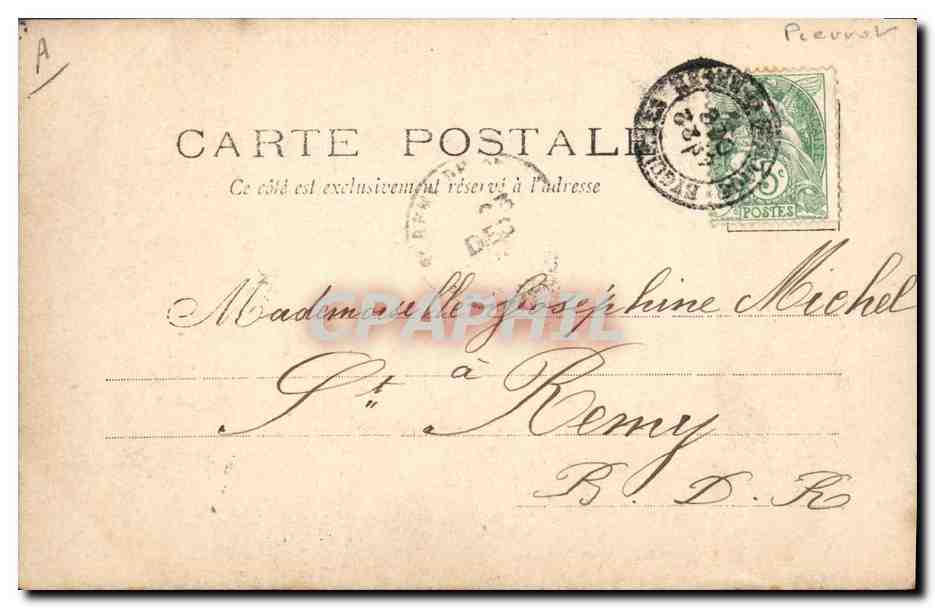 A
Pierrot
CARTE POSTALE
Ce côté est exclusivement réservé à l'adresse
EYGUIERES
5c
POSTES
23
DEC
Mademoiselle Joséphine Michel
à
St Remy
B. D. R
CPAPHIL